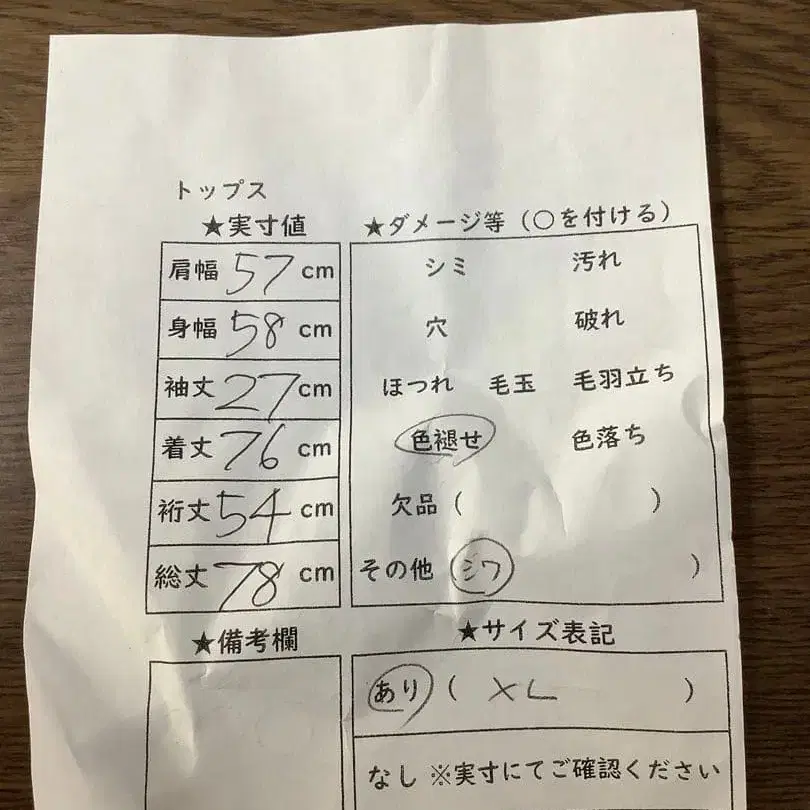 トップス
★実寸値
肩幅 57 cm
身幅 58 cm
袖丈 27 cm
着丈 76 cm
裄丈 54 cm
総丈 78 cm
★ダメージ等（○を付ける）
シミ 汚れ
穴 破れ
ほつれ 毛玉 毛羽立ち
色褪せ 色落ち
欠品（ ）
その他（シワ ）
★備考欄
★サイズ表記
あり（ XL ）
なし ※実寸にてご確認ください